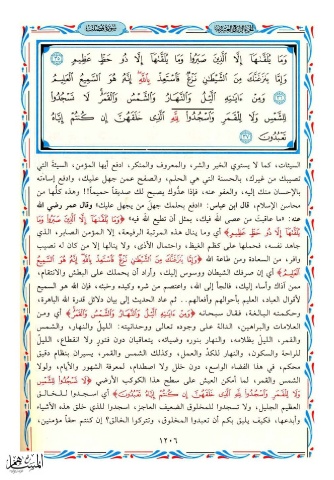 وَمَا يُلَقَّىٰهَآ إِلَّا ٱلَّذِينَ صَبَرُوا۟ وَمَا يُلَقَّىٰهَآ إِلَّا ذُو حَظٍّ عَظِيمٍ ٣٥
وَإِمَّا يَنزَغَنَّكَ مِنَ ٱلشَّيْطَٰنِ نَزْغٌ فَٱسْتَعِذْ بِٱللَّهِ إِنَّهُۥ هُوَ ٱلسَّمِيعُ ٱلْعَلِيمُ
٣٦ وَمِنْ ءَايَٰتِهِ ٱلَّيْلُ وَٱلنَّهَارُ وَٱلشَّمْسُ وَٱلْقَمَرُ لَا تَسْجُدُوا۟
لِلشَّمْسِ وَلَا لِلْقَمَرِ وَٱسْجُدُوا۟ لِلَّهِ ٱلَّذِى خَلَقَهُنَّ إِن كُنتُمْ إِيَّاهُ
تَعْبُدُونَ ٣٧
السيئات، كما لا يستوي الخير والشر، والمعروف والمنكر، ادفع أيها المؤمن، السيئة التي
تصيبك من غيرك، بالحسنة التي هي الحلم، والصفح عمن جهل عليك، وادفع إساءته
بالإحسان منك إليه، والعفو عنه، فإذا عدوك يصبح لك صديقاً حميماً!! وهذه كلها من
محاسن الإسلام، قال ابن عباس: «ادفع بحلمك جهل من يجهل عليك» وقال عمر رضي الله
عنه: «ما عاقبت من عصى الله فيك، بمثل أن تطيع الله فيه» ﴿وَمَا يُلَقَّىٰهَآ إِلَّا ٱلَّذِينَ صَبَرُوا۟ وَمَا
يُلَقَّىٰهَآ إِلَّا ذُو حَظٍّ عَظِيمٍ﴾ أي وما ينال هذه المرتبة الرفيعة، إلا المؤمن الصابر، الذي
جاهد نفسه، فحملها على كظم الغيظ، واحتمال الأذى، ولا ينالها إلا من كان له نصيب
وافر، من السعادة ومن طاعة الله ﴿وَإِمَّا يَنزَغَنَّكَ مِنَ ٱلشَّيْطَٰنِ نَزْغٌ فَٱسْتَعِذْ بِٱللَّهِ إِنَّهُۥ هُوَ ٱلسَّمِيعُ
ٱلْعَلِيمُ﴾ أي إن صرفك الشيطان ووسوس إليك، وأراد أن يحملك على البطش والانتقام،
ممن آذاك وأساء إليك، فالجأ إلى الله، واعتصم من شره وكيده وخبثه، فإن الله هو السميع
لأقوال العباد، العليم بأحوالهم وأفعالهم.. ثم عاد الحديث إلى بيان دلائل قدرة الله الباهرة،
وحكمته البالغة، فقال سبحانه ﴿وَمِنْ ءَايَٰتِهِ ٱلَّيْلُ وَٱلنَّهَارُ وَٱلشَّمْسُ وَٱلْقَمَرُ﴾ أي ومن
العلامات والبراهين، الدالة على وجوده تعالى ووحدانيته: الليل والنهار، والشمس
والقمر، الليل بظلامه، والنهار بنوره وضيائه، يتعاقبان دون فتور ولا انقطاع، الليل
للراحة والسكون، والنهار للكد والعمل، وكذلك الشمس والقمر، يسيران بنظام دقيق
محكم، في هذا الفضاء الواسع، دون خلل ولا اصطدام، لمعرفة الشهور والأيام، ولولا
الشمس والقمر، لما أمكن العيش على سطح هذا الكوكب الأرضي ﴿لَا تَسْجُدُوا۟ لِلشَّمْسِ
وَلَا لِلْقَمَرِ وَٱسْجُدُوا۟ لِلَّهِ ٱلَّذِى خَلَقَهُنَّ إِن كُنتُمْ إِيَّاهُ تَعْبُدُونَ﴾ أي اسجدوا للخالق
العظيم الجليل، ولا تسجدوا للمخلوق الضعيف العاجز، اسجدوا للذي خلق هذه الأشياء
وأبدعها، فكيف يليق بكم أن تعبدوا المخلوق، وتتركوا الخالق؟ إن كنتم حقاً مؤمنين،
١٢٠٦